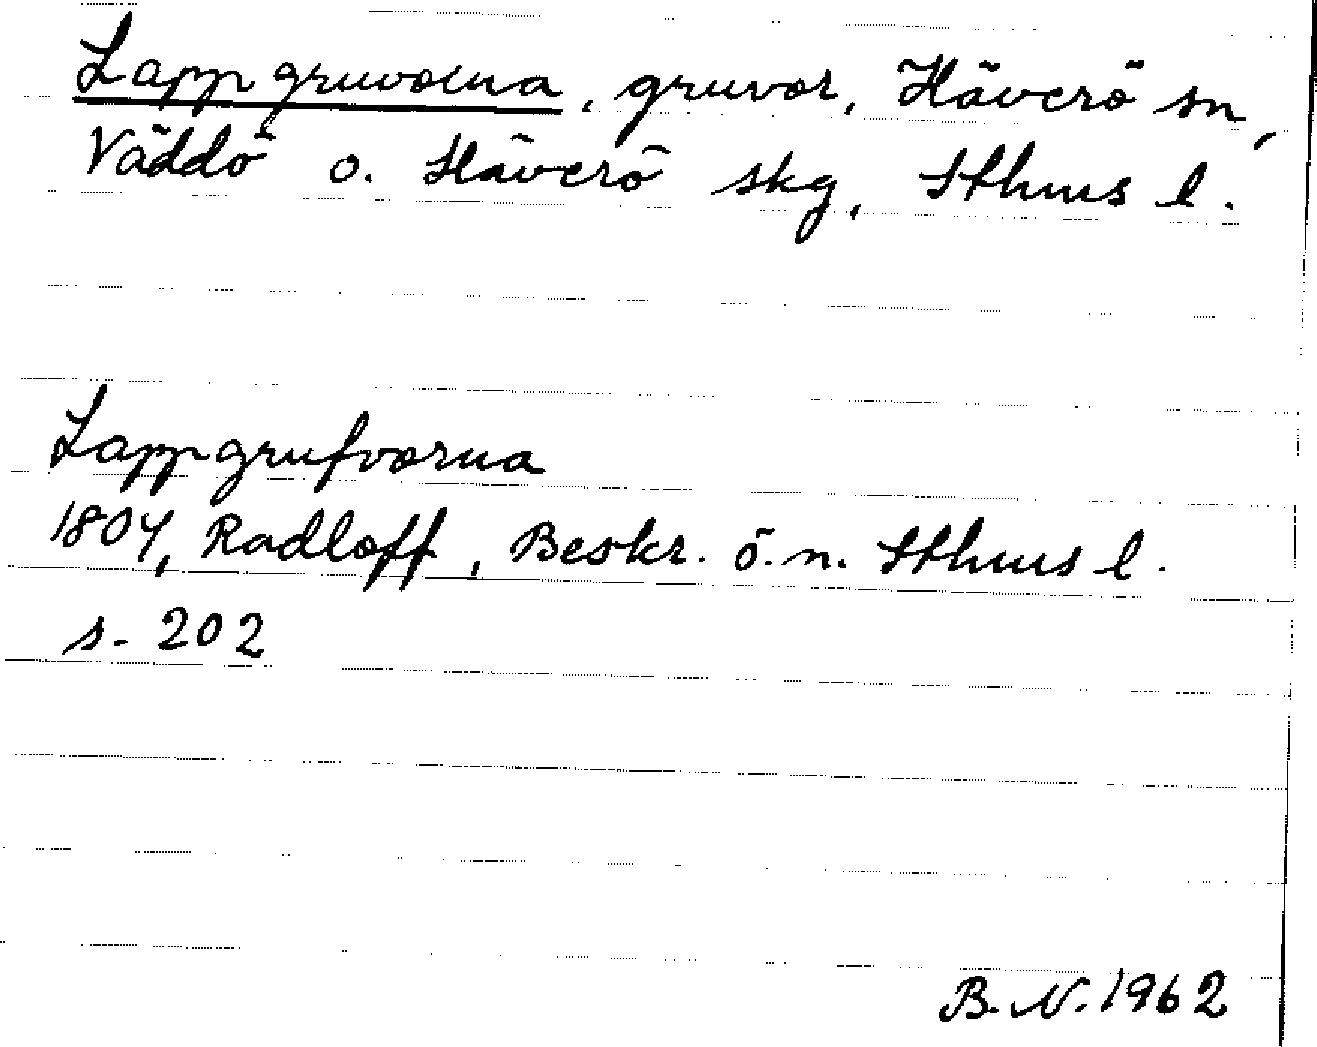 Lappgruvorna, gruvor, Häverö sn,
Väddö o. Häverö skg, Sthms l.
Lappgrufvorna
1804, Radloff, Beskr. ö. n. Sthms l.
s. 202
B. N. 1962